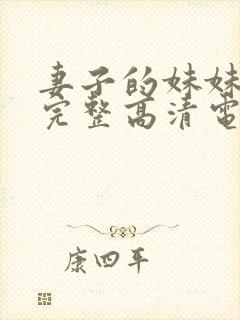 妻子的妹妹
完整高清电
康四平